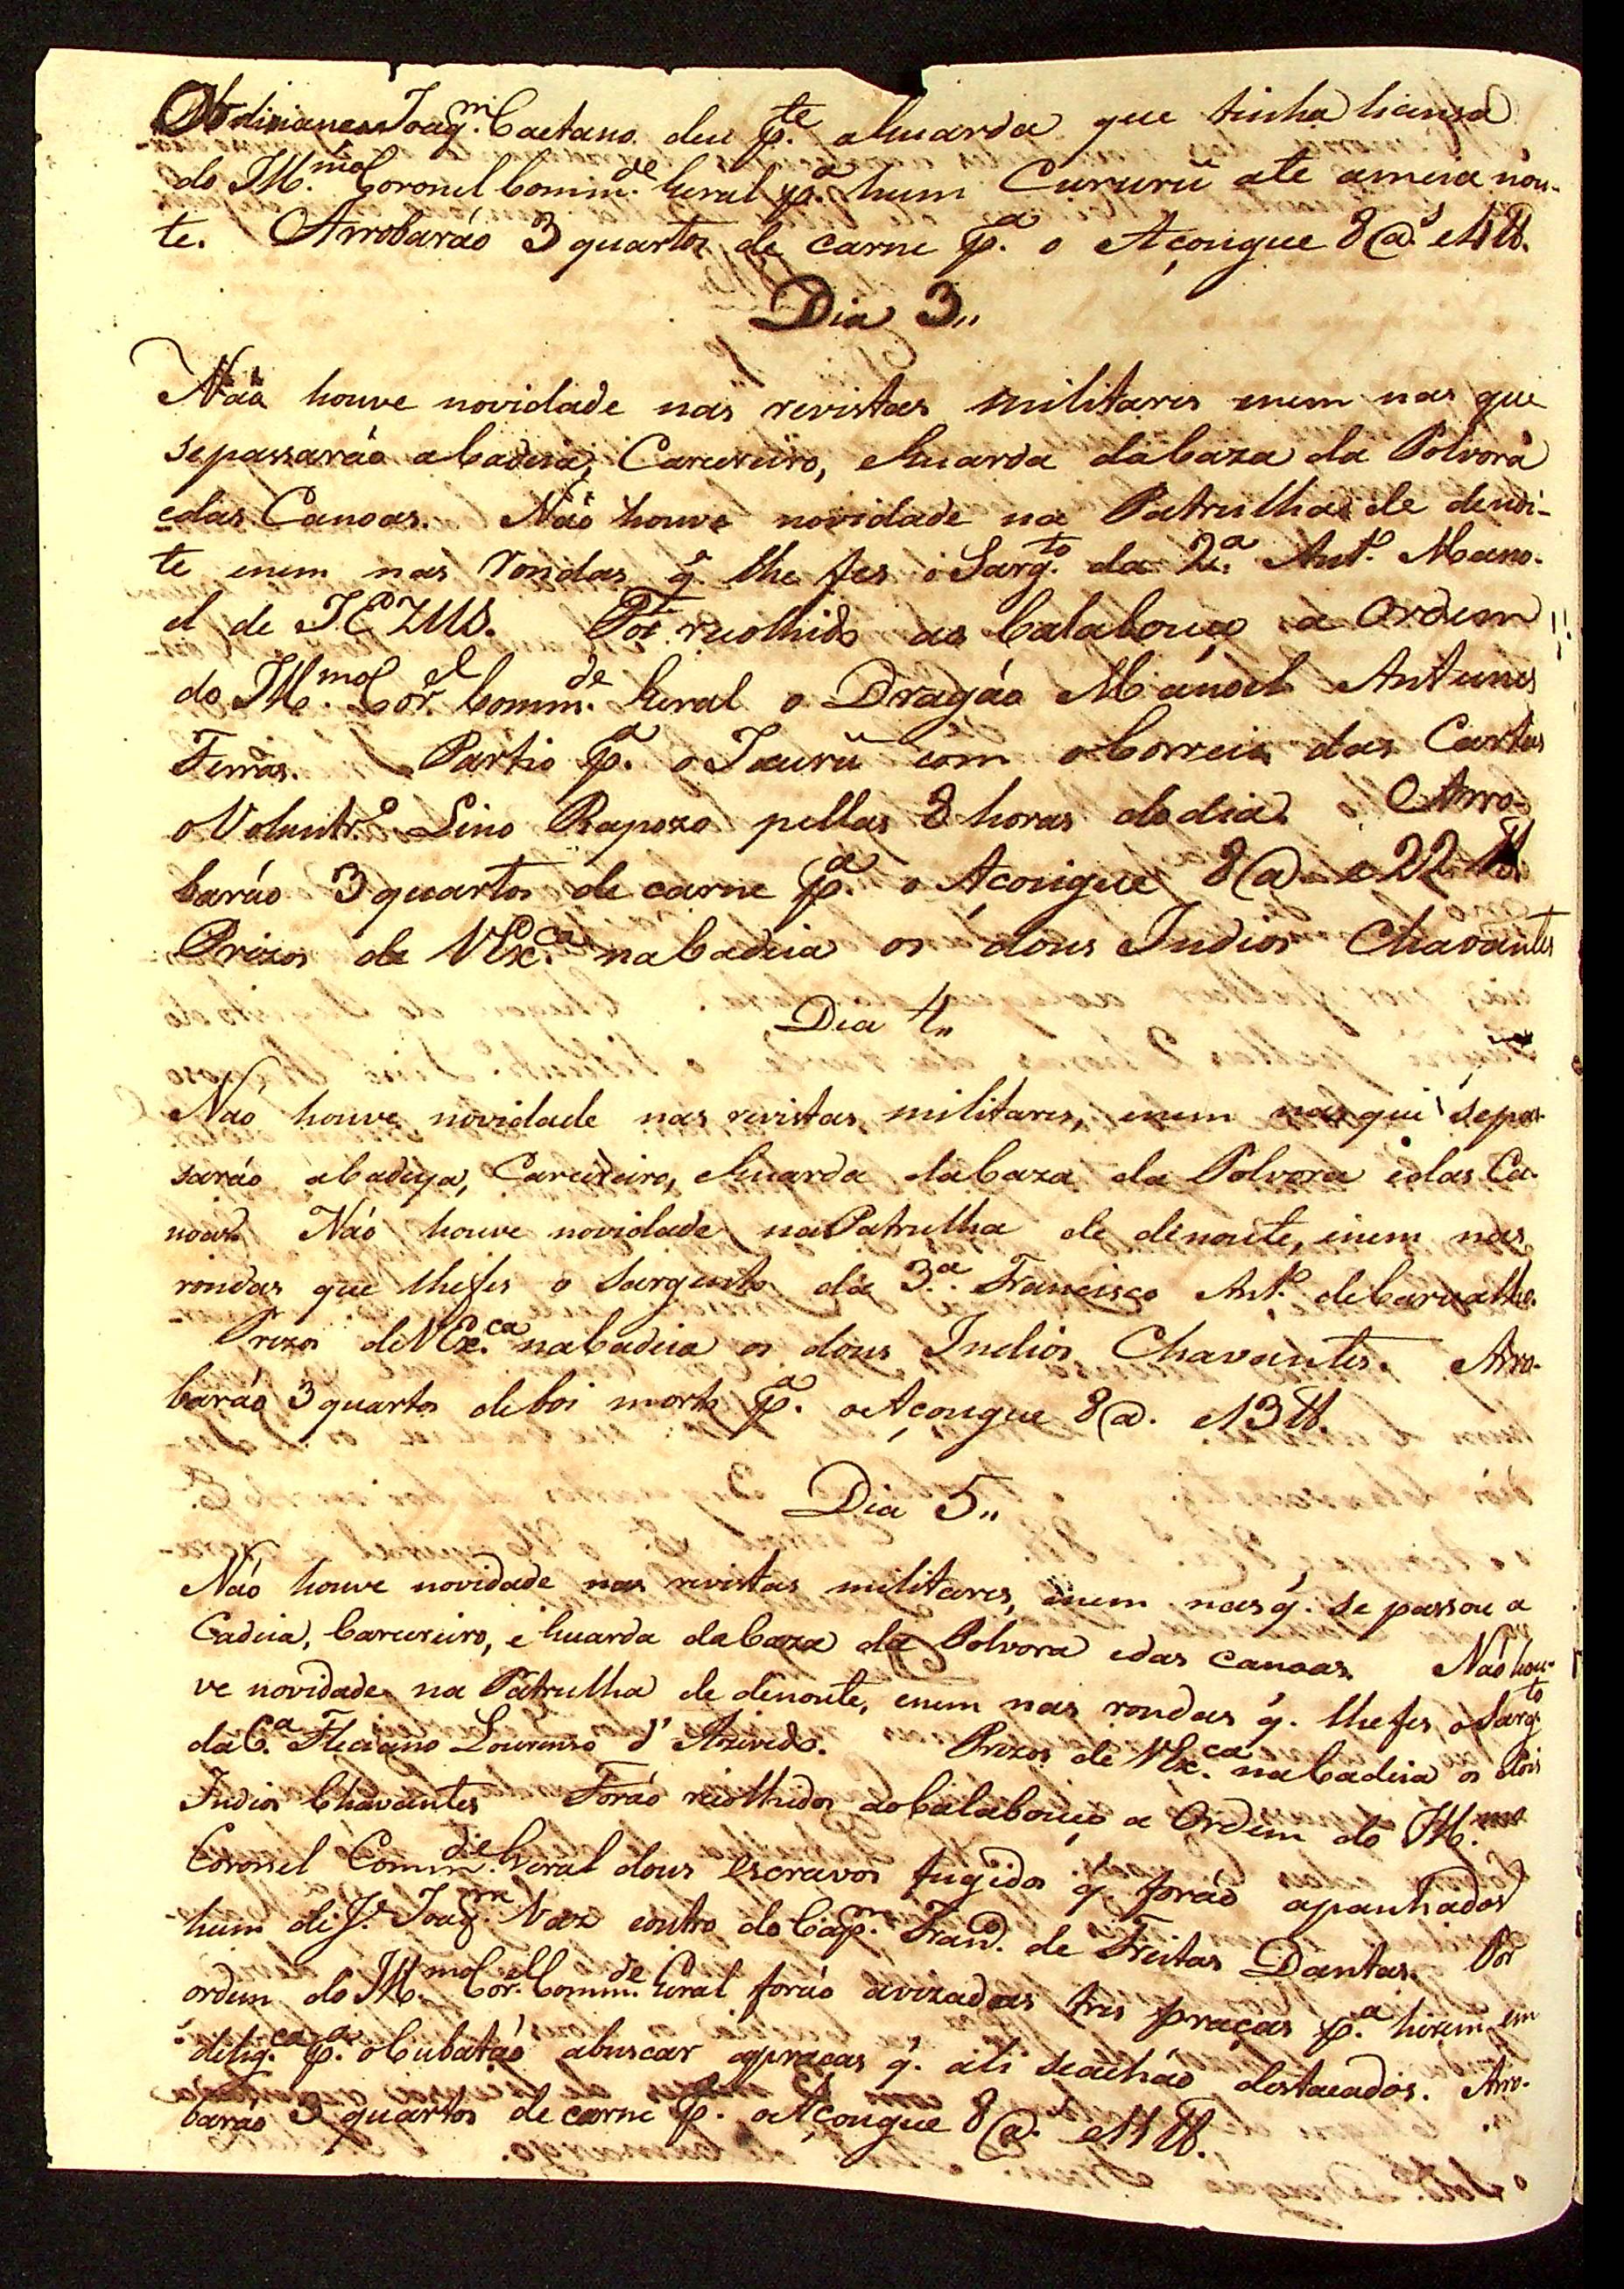 Joaq.m Caetano deu p.te aGuarda que tinha licensa
do Ill.mo Coronel Comm.de Geral p.a hum Cururú ate ameia nou-
te. Arrobaráo 3 quartos de carne p.a o Açougue 8@.s e 4 ℔.
Dia 3,,
Náo houve novidade nas revistas militares enem nas que
sepassaráo aCadeia, Carcereiro, eGuarda daCaza da Polvora
edas Canoas. Náo houve novidade na Patrulha de denoi-
te enem nas rondas q. lhe fes o Sarg.to da 2.a Ant.o Mano-
el de JEZUS. Foi recolhido ao Calabouço a Ordem
do Ill.mo Cor.el Comm.de Geral o Dragáo Manoel Antunes
Ferras. Partio p.a o Jaurú com oCorreio das Cartas
oVoluntr.o Lino Rapozo pellas 8 horas dodia. Arro-
baráo 3 quartos de carne p.a o Açougue 8@ e 22 ℔.
Prezos de VEx.ca naCadeia os dous Indios Chavantes
Dia 4,,
Náo houve novidade nas revistas militares, enem nas que sepas-
saráo aCadeya, Carcereiro, eGuarda daCaza da Polvora edas Ca-
noas. Náo houve novidade naPatrulha de denoute, enem nas
rondas que lhefes o Sargento da 3.a Francisco Ant.o deCarvalho.
Prezos deVEx.ca naCadeia os dous Indios Chavantes. Arro-
baráo 3 quartos deboi morto p.a oAçougue 8@. e13 ℔.
Dia 5,,
Náo houve novidade nas revistas militares, enem nasq. se passou a
Cadeia, Carcereiro, eGuarda daCaza da Polvora edas canoas. Náo hou-
ve novidade na Patrulha de denoute, enem nas rondas q. lhefes oSarg.to
da 6.a Feliciano Lourenso d'Azevedo. Prezos de VEx.ca naCadeia os dois
Indios Chavantes Foráo recolhidos aoCalabouço a Ordem do Ill.mo
Coronel Comm.de Geral dous escravos fugidos q. foráo apanhados
hum de J.e Joaq.m Vaz eoutro do Cap.m Fran.o de Freitas Dantas. Por
ordem do Ill.mo Cor.el Comm.de Geral foráo avizadas tres praças p.a hirem em
delig.ca p.a oCubatáo abuscar aspraças q. ali seacháo destacados. Arro-
baráo 3 quartos de carne p.a oAçougue 8@. e11 ℔.